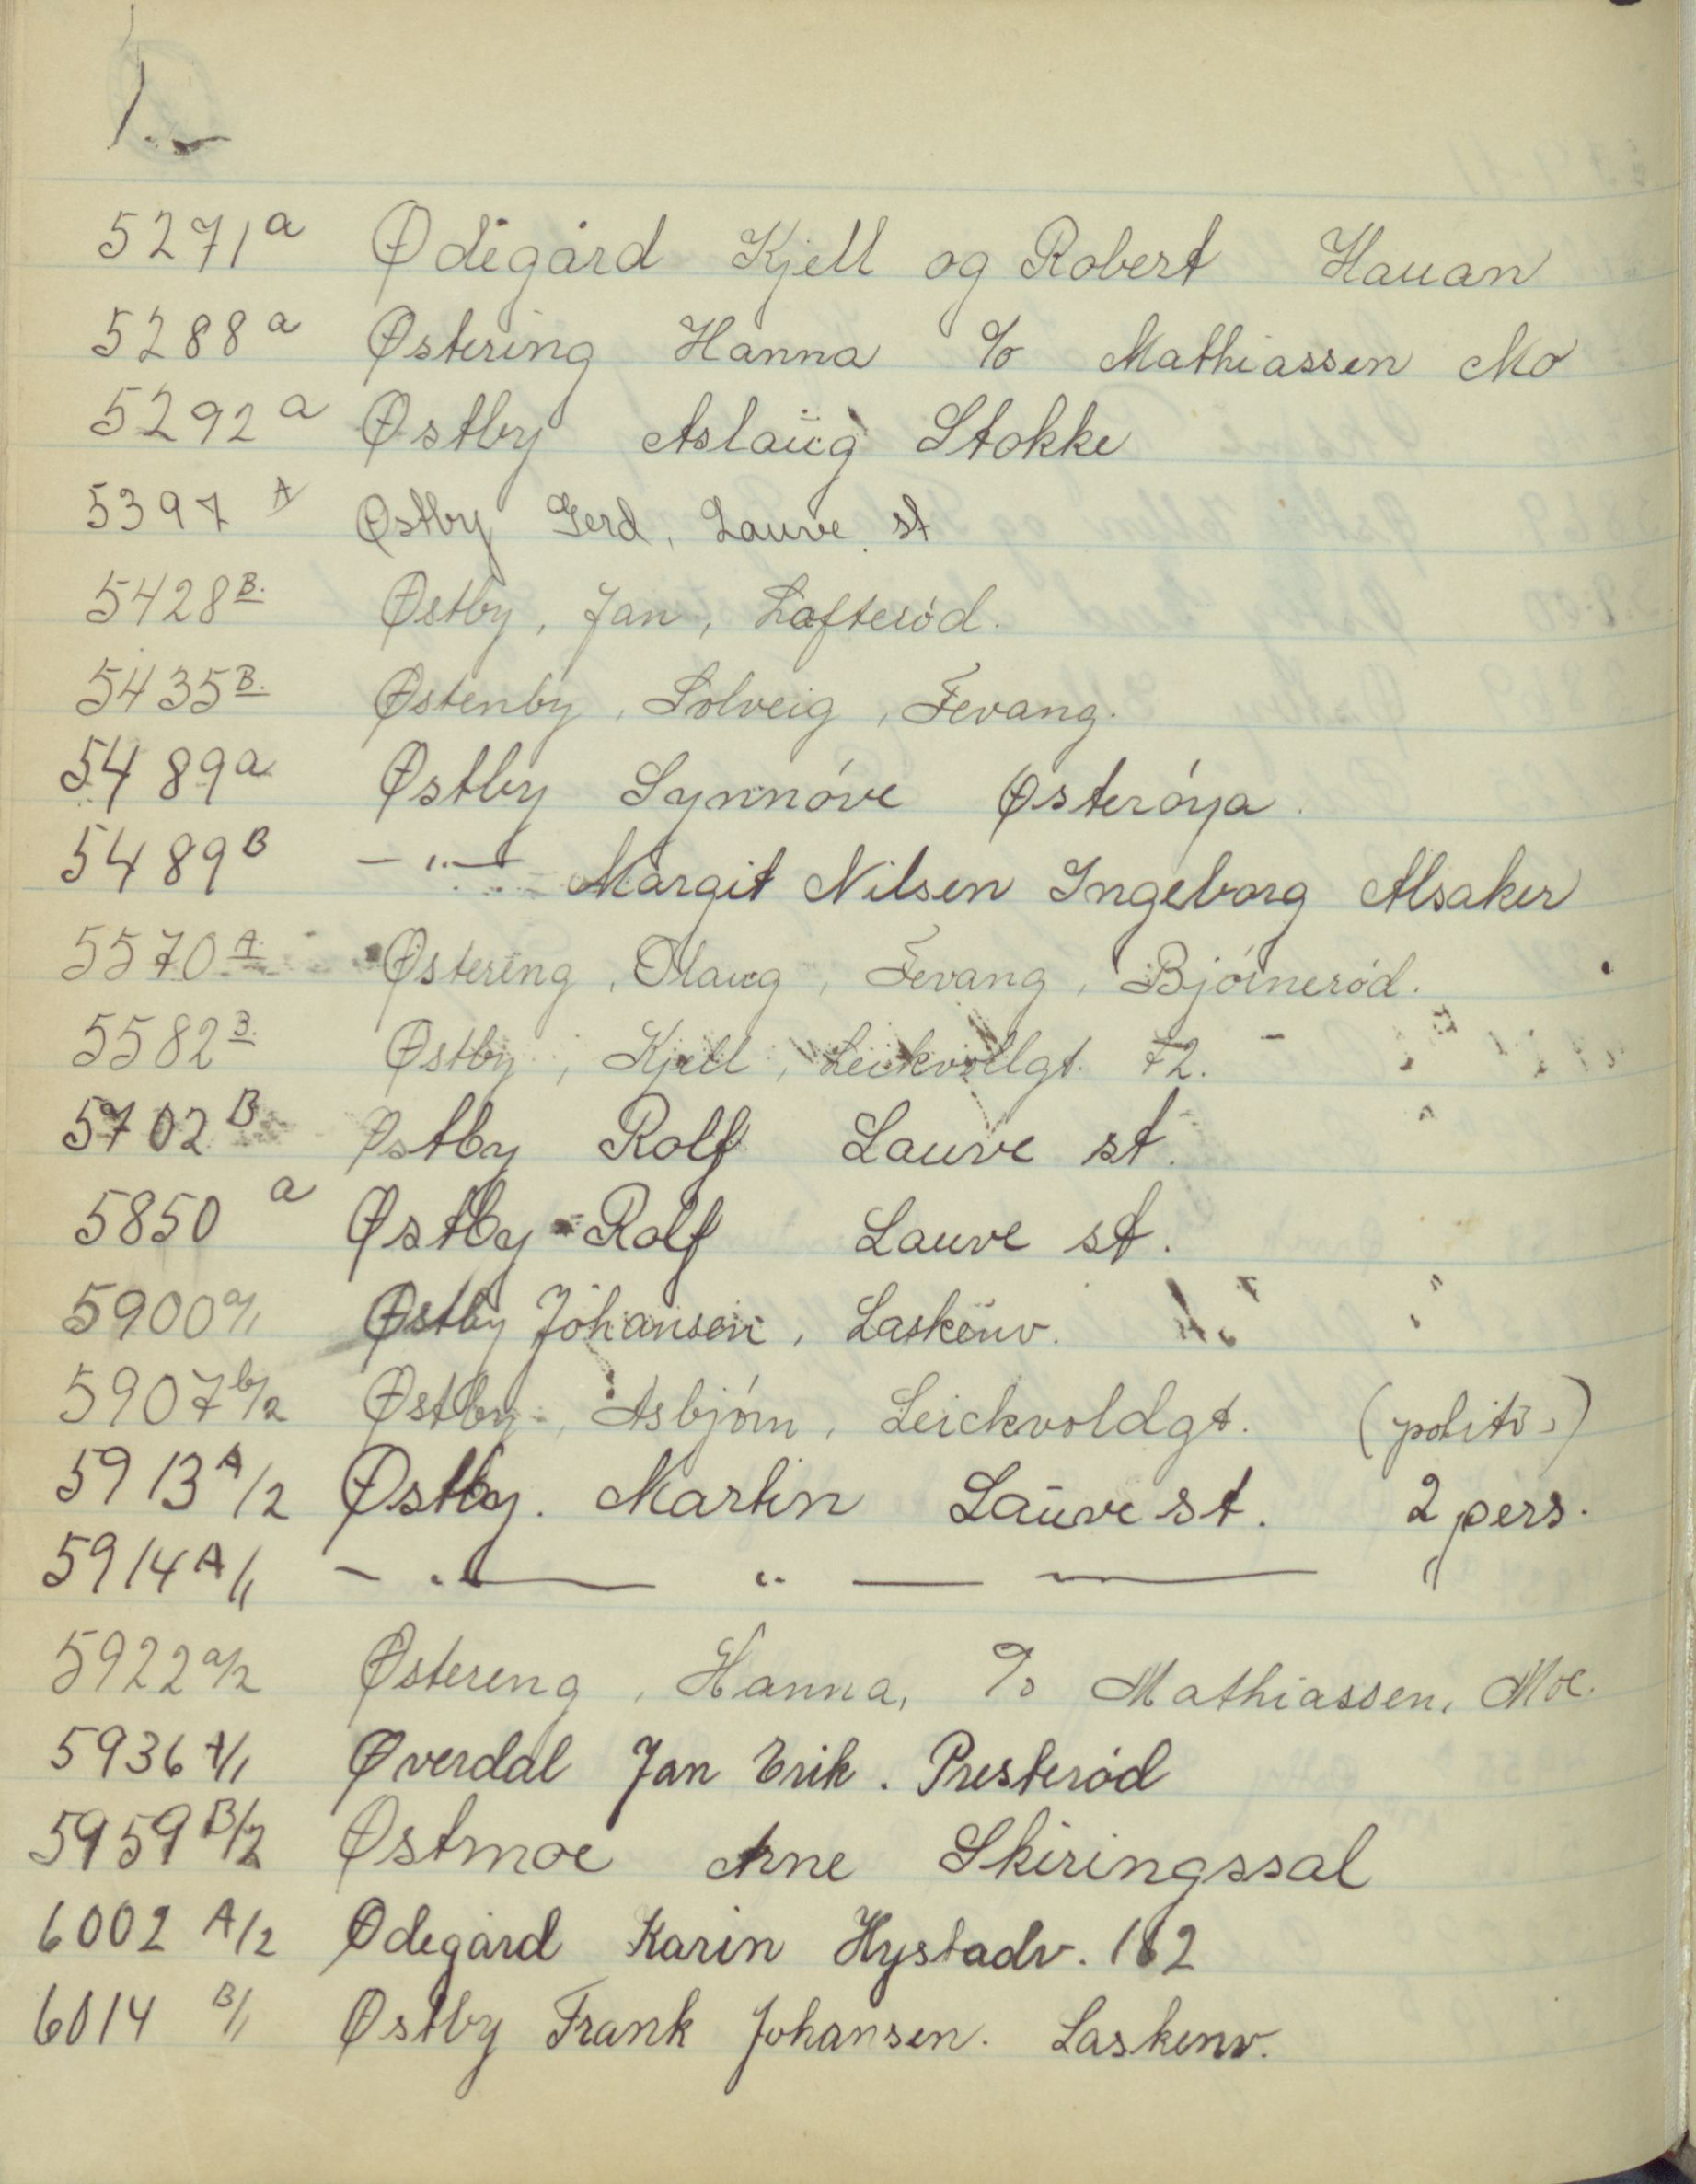 5271a Ødegård Kjell og Robert Hauan
5288a Østering Hanna c/o Mathiassen Mo
5292a Østby Aslaug Stokke
5397A Østby Gerd, Lauve st
5428B. Østby, Jan, Lofterød.
5435B. Østenby, Solveig, Fevang.
5489a Østby Synnøve Østerøya.
5489B — " — Margit Nilsen Ingeborg Alsaker
5570A. Østering, Olaug, Fevang, Bjørnerød.
5582B. Østby, Kjell, Leickvollgt. 72.
5702B Østby Rolf Lauve st.
5850a Østby Rolf Lauve st.
5900a/1 Østby Johansen, Laskenv.
5907b/2 Østby, Asbjørn, Leickvoldgt. (politi.)
5913A/2 Østby. Martin Lauve st. 2 pers.
5914A/1 — " — " — — "
5922a/2 Østereng, Hanna, c/o Mathiassen, Moe.
5936A/1 Øverdal Jan Erik. Presterød
5959B/2 Østmoe Arne Skiringssal
6002A/2 Ødegård Karin Hystadv. 162
6014B/1 Østby Frank Johansen. Laskenv.